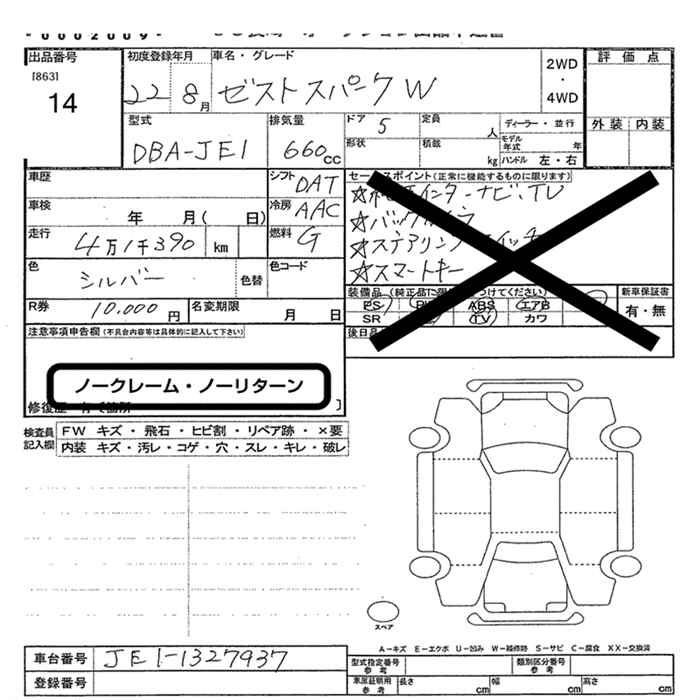 0002009
出品番号
[863]
14
初度登録年月
22 8月
車名・グレード
ゼストスパークW
2WD
・
4WD
評価点
外装 内装
型式
DBA-JE1
排気量
660cc
ドア
5
定員
人
ディーラー・並行
形状
積載
kg
モデル年式
年
ハンドル 左・右
車歴
シフト DAT
車検
年 月( 日)
冷房 AAC
走行
4万1千390 km
燃料 G
色
シルバー
色替
色コード
R券 10.000円
名変期限 月 日
セールスポイント(正常に機能するものに限ります)
☆インターナビ、TV
☆バックカメラ
☆ステアリングスイッチ
☆スマートキー
装備品(純正品に限
つけてください)
PS ABS エアB
SR TV カワ
新車保証書
有・無
後日品
注意事項申告欄(不具合内容等は具体的に記入して下さい)
ノークレーム・ノーリターン
修復歴 有で箇所 ]
検査員記入欄
FW キズ・飛石・ヒビ割・リペア跡・×要
内装 キズ・汚レ・コゲ・穴・スレ・キレ・破レ
スペア
A-キズ E-エクボ U-凹み W-補修跡 S-サビ C-腐食 XX-交換済
車台番号 JE1-1327937
登録番号
型式指定番号
参考
類別区分番号
参考
車庫証明用
参考
長さ cm
幅 cm
高さ cm